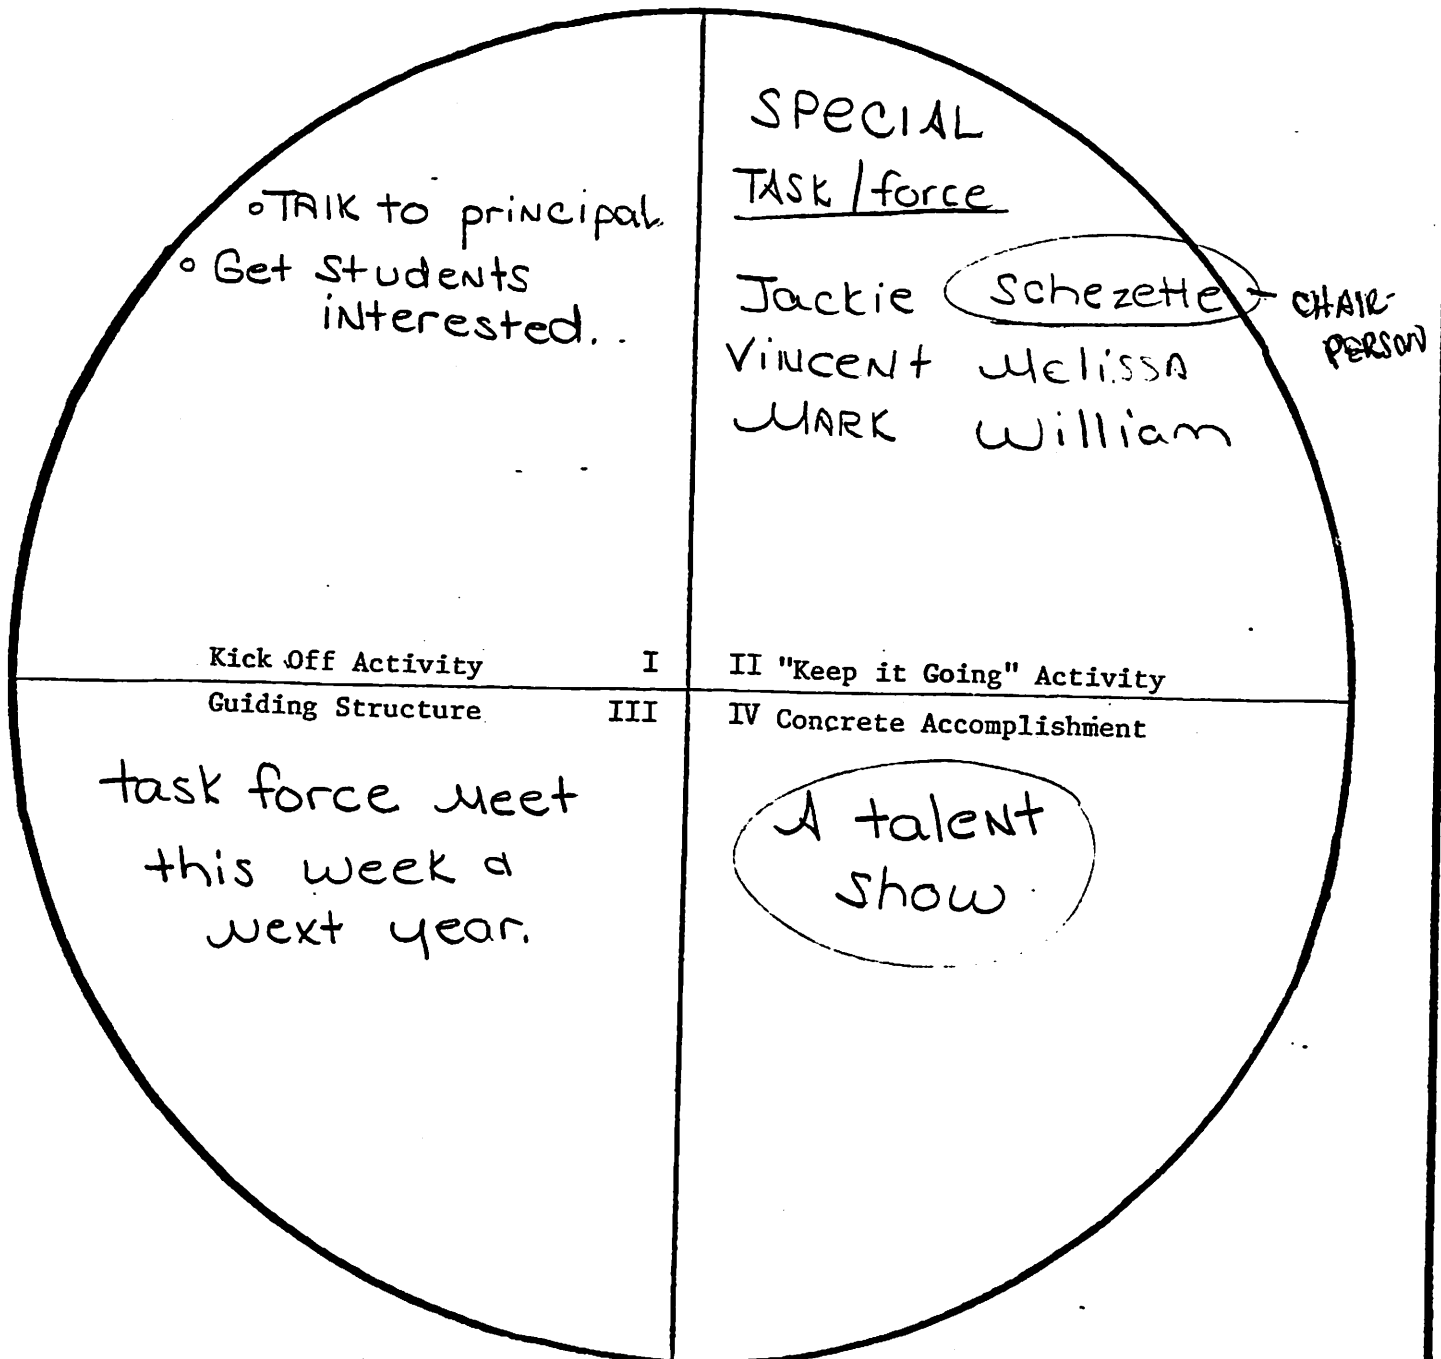 ∘ TAlK to principal.
∘ Get Students
interested..
Kick Off Activity I
SPECIAL
TASK/force
Jackie Schezette - CHAIR-
PERSON
Vincent Melissa
MARK William
II "Keep it Going" Activity
Guiding Structure III
task force Meet
this week &
Next year.
IV Concrete Accomplishment
A talent
Show